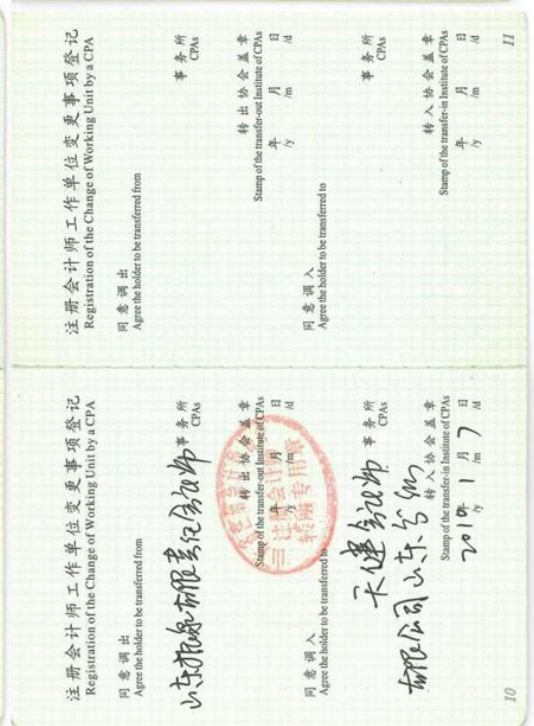 注册会计师工作单位变更事项登记
Registration of the Change of Working Unit by a CPA
同意调出
Agree the holder to be transferred from
山东 有限责任会计师 事务所
CPAs
转出协会盖章
Stamp of the transfer-out Institute of CPAs
年 月 日
/y /m /d
注册会计师
转所专用章
同意调入
Agree the holder to be transferred to
天健会计师 事务所
CPAs
有限公司山东分所
转入协会盖章
Stamp of the transfer-in Institute of CPAs
年 1 月 7 日
/y /m /d
10
注册会计师工作单位变更事项登记
Registration of the Change of Working Unit by a CPA
同意调出
Agree the holder to be transferred from
事务所
CPAs
转出协会盖章
Stamp of the transfer-out Institute of CPAs
年 月 日
/y /m /d
同意调入
Agree the holder to be transferred to
事务所
CPAs
转入协会盖章
Stamp of the transfer-in Institute of CPAs
年 月 日
/y /m /d
11